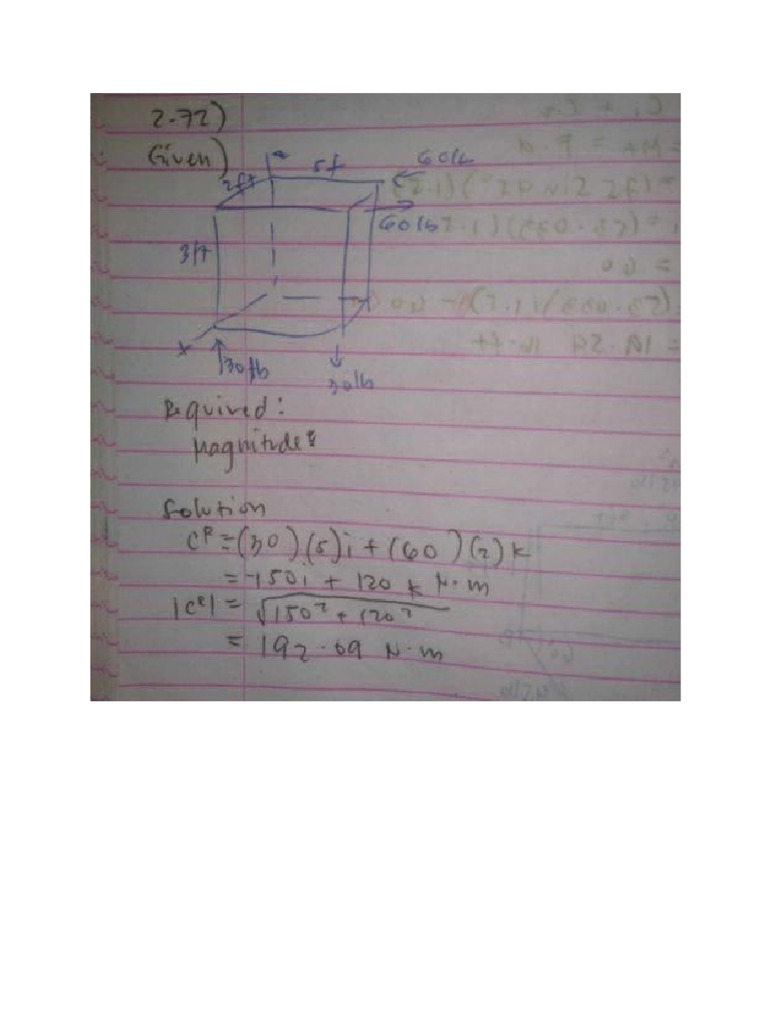 2.72)
Given)
5f
60lb
2ft
60lb
3ft
x
30lb
30lb
Required:
Magnitude
Solution
C^R = (30)(5)i + (60)(2)k
= -150i + 120k N·m
|C^R| = √150² + 120²
= 192.09 N·m